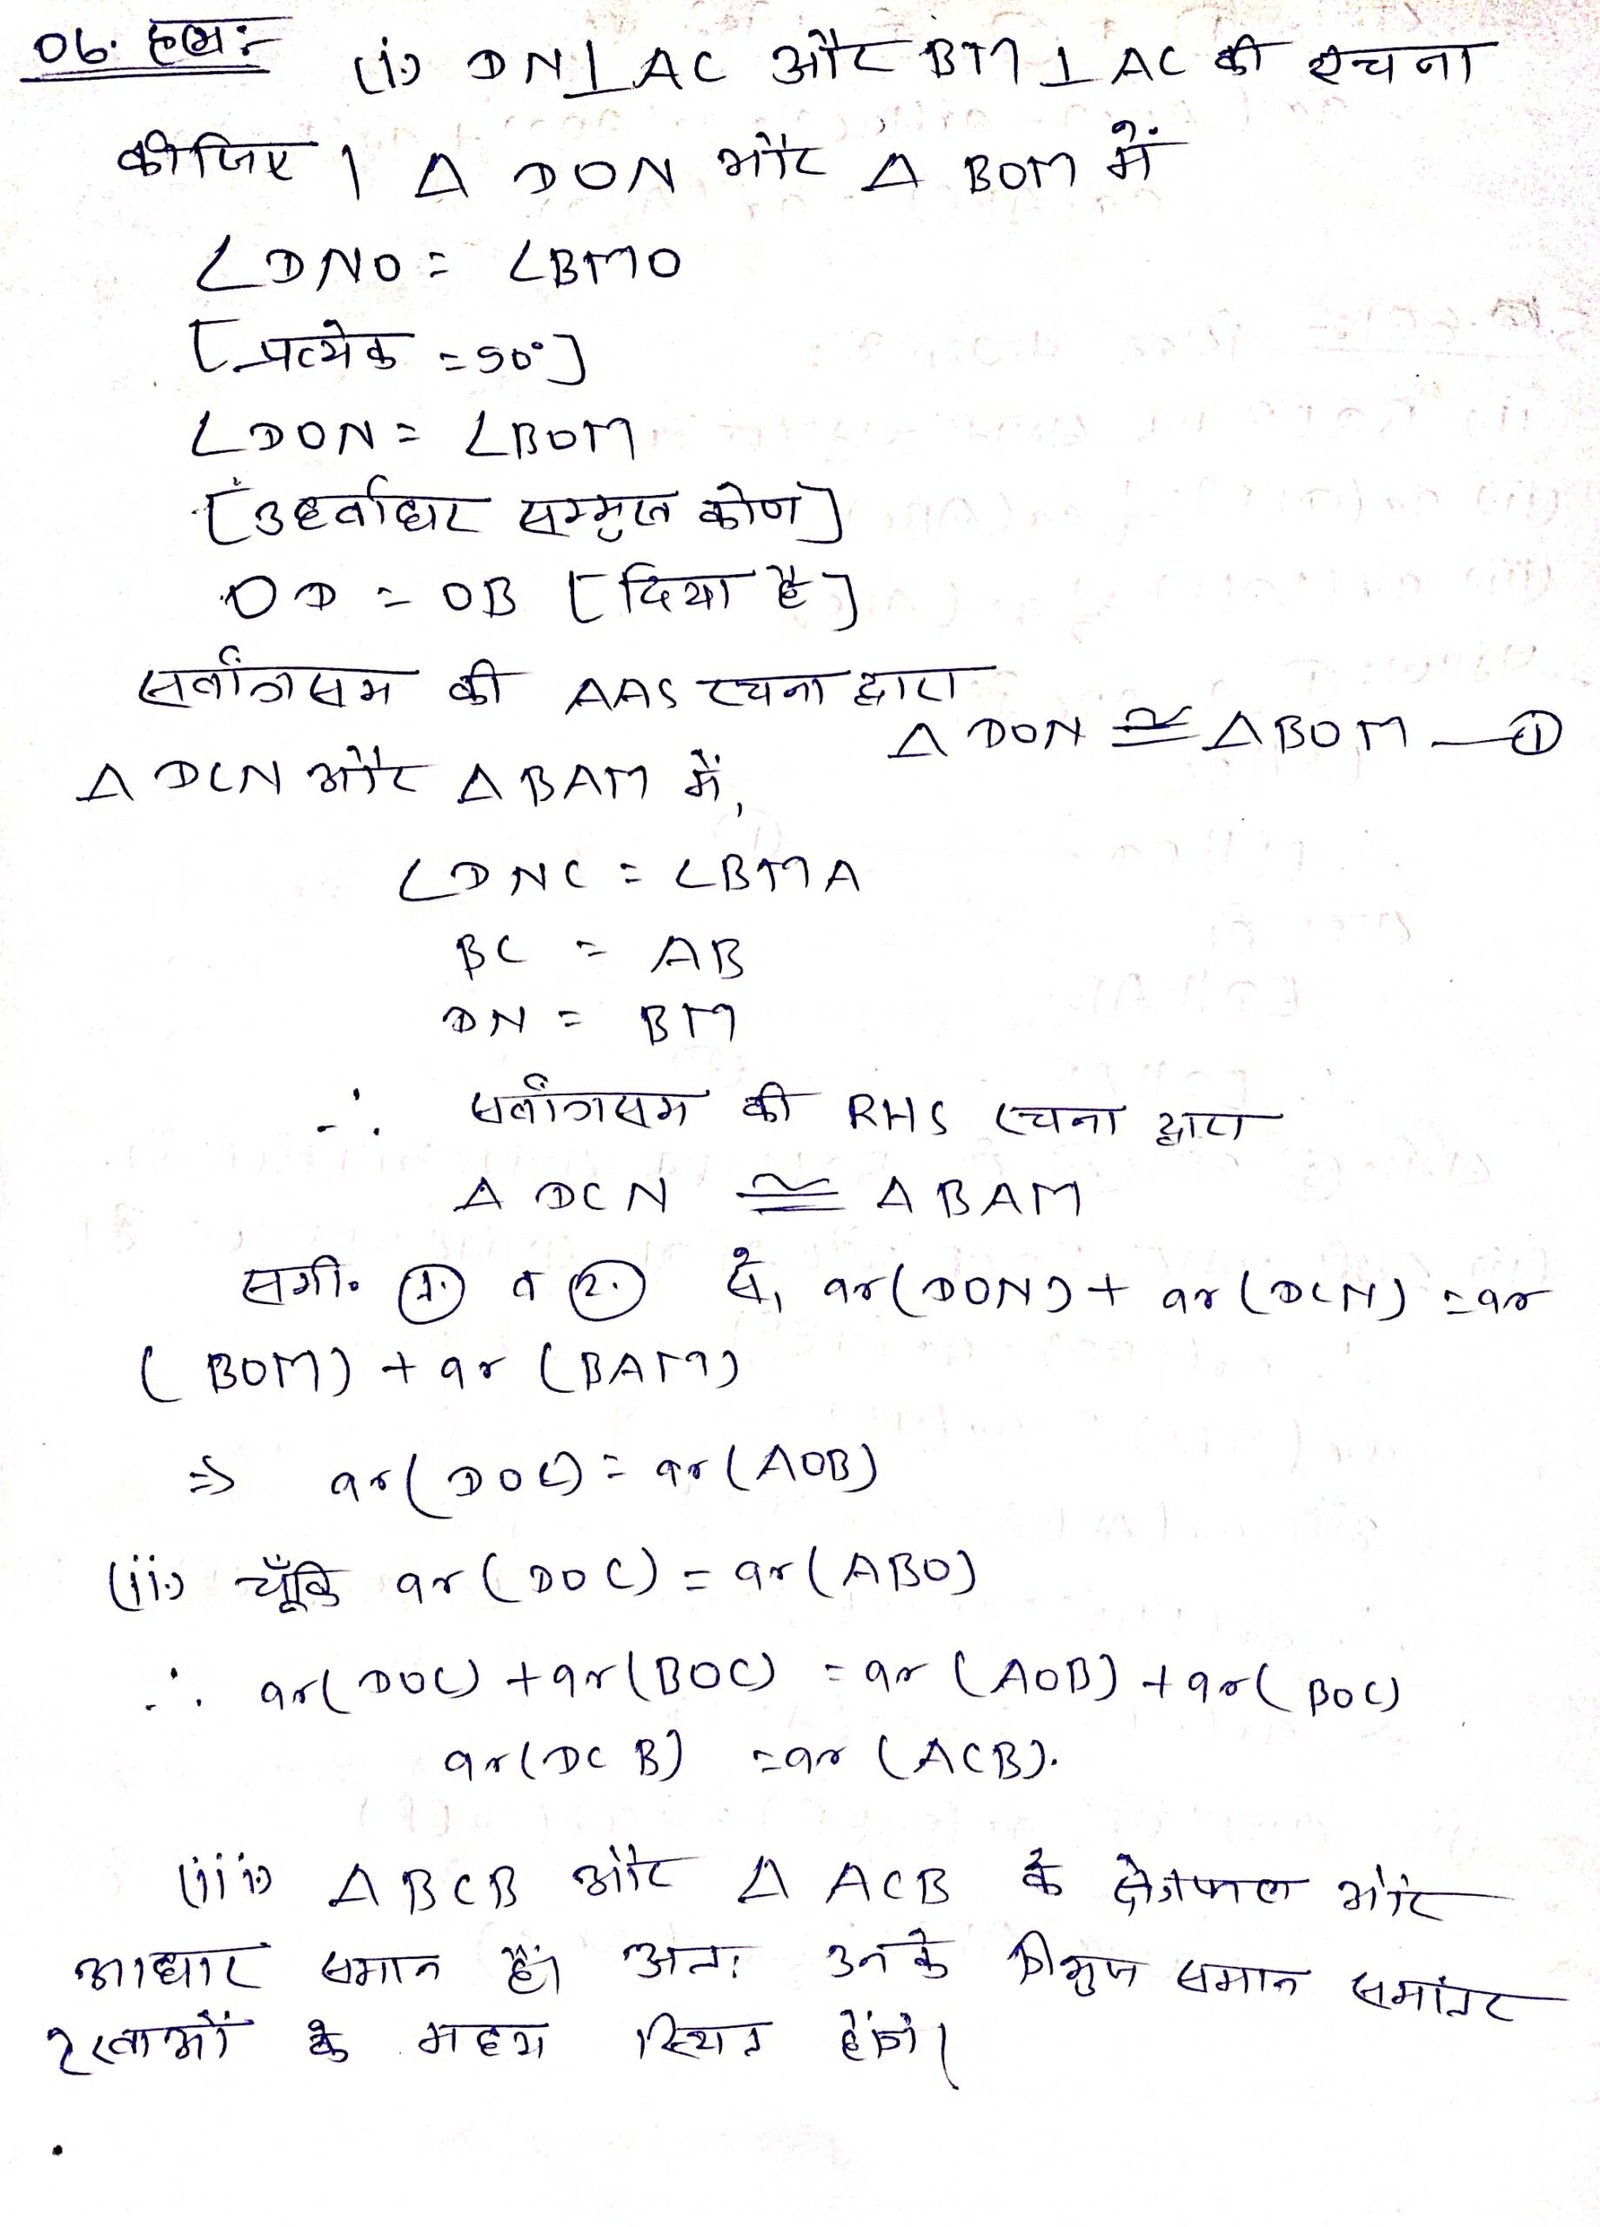 06. हल:-
(i) DN⊥AC और BM⊥AC की रचना
कीजिए। Δ DON और Δ BOM में
∠DNO = ∠BMO
[प्रत्येक = 90°]
∠DON = ∠BOM
[उर्ध्वाधर सम्मुख कोण]
OD = OB [दिया है]
सर्वांगसम की AAS रचना द्वारा
Δ DON ≅ Δ BOM —①
Δ DCN और Δ BAM में,
∠DNC = ∠BMA
BC = AB
DN = BM
∴ सर्वांगसम की RHS रचना द्वारा
Δ DCN ≅ Δ BAM
समी. ① व ② से, ar(DON) + ar(DCN) = ar
(BOM) + ar (BAM)
⇒ ar(DOC) = ar(AOB)
(ii) चूँकि ar(DOC) = ar(ABO)
∴ ar(DOC) + ar(BOC) = ar (AOB) + ar(BOC)
ar(DCB) = ar (ACB).
(iii) Δ BCB और Δ ACB के क्षेत्रफल और
आधार समान हैं। अतः उनके त्रिभुज समान समांतर
रेखाओं के मध्य स्थित होंगे।